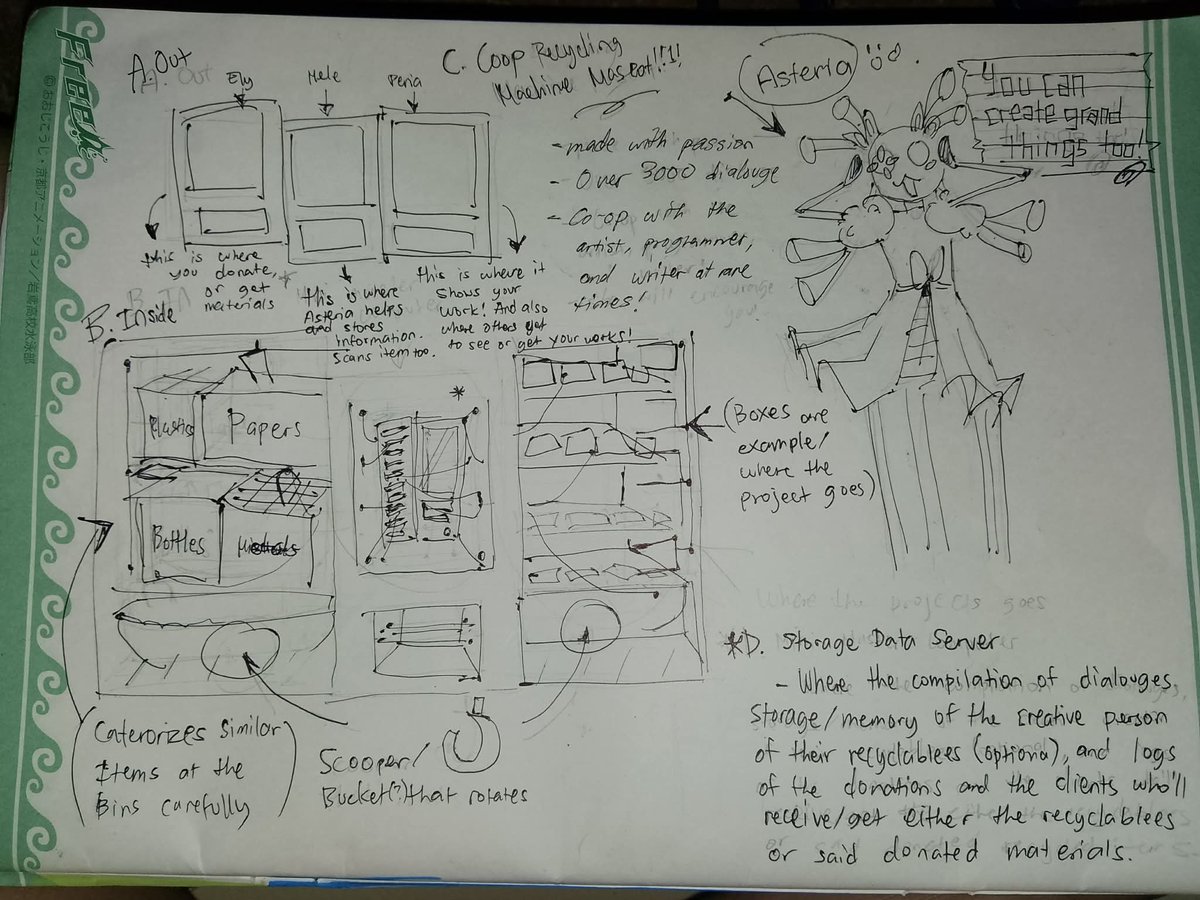 Free!
©おおじこうじ・京都アニメーション/岩鳶高校水泳部
A. Out
Ely
Mele
Peria
this is where
you donate,
or get
materials
this is where
Asteria helps
and stores
information.
Scans item too.
this is where it
shows your
work! And also
where others get
to see or get your works!
C. Coop Recycling
Machine Mascot!!!!
- made with passion
- Over 3000 dialouge
- Co-op with the
artist, programmer,
and writer at rare
times!
Asteria
You can
create grand
things too!
B. Inside
Plastics
Papers
Bottles
*
(Boxes are
example/
where the
project goes)
(Caterorizes Similar
Items at the
Bins carefully)
Scooper/
Bucket(?) that rotates
Where the projects goes
*D. Storage Data Server
- Where the compilation of dialouges,
storage/memory of the creative person
of their recyclablees (optiona), and logs
of the donations and the clients who'll
receive/get either the recyclablees
or said donated materials.